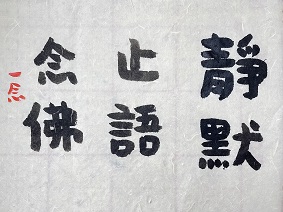 靜默
止語
念佛
一念